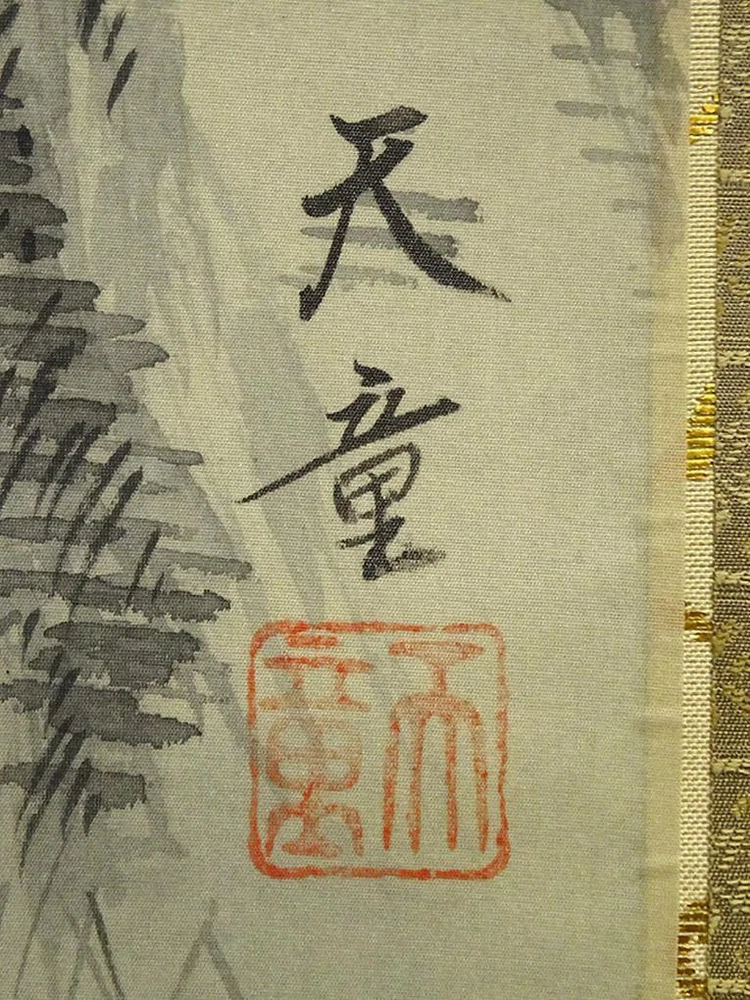 天童
天童